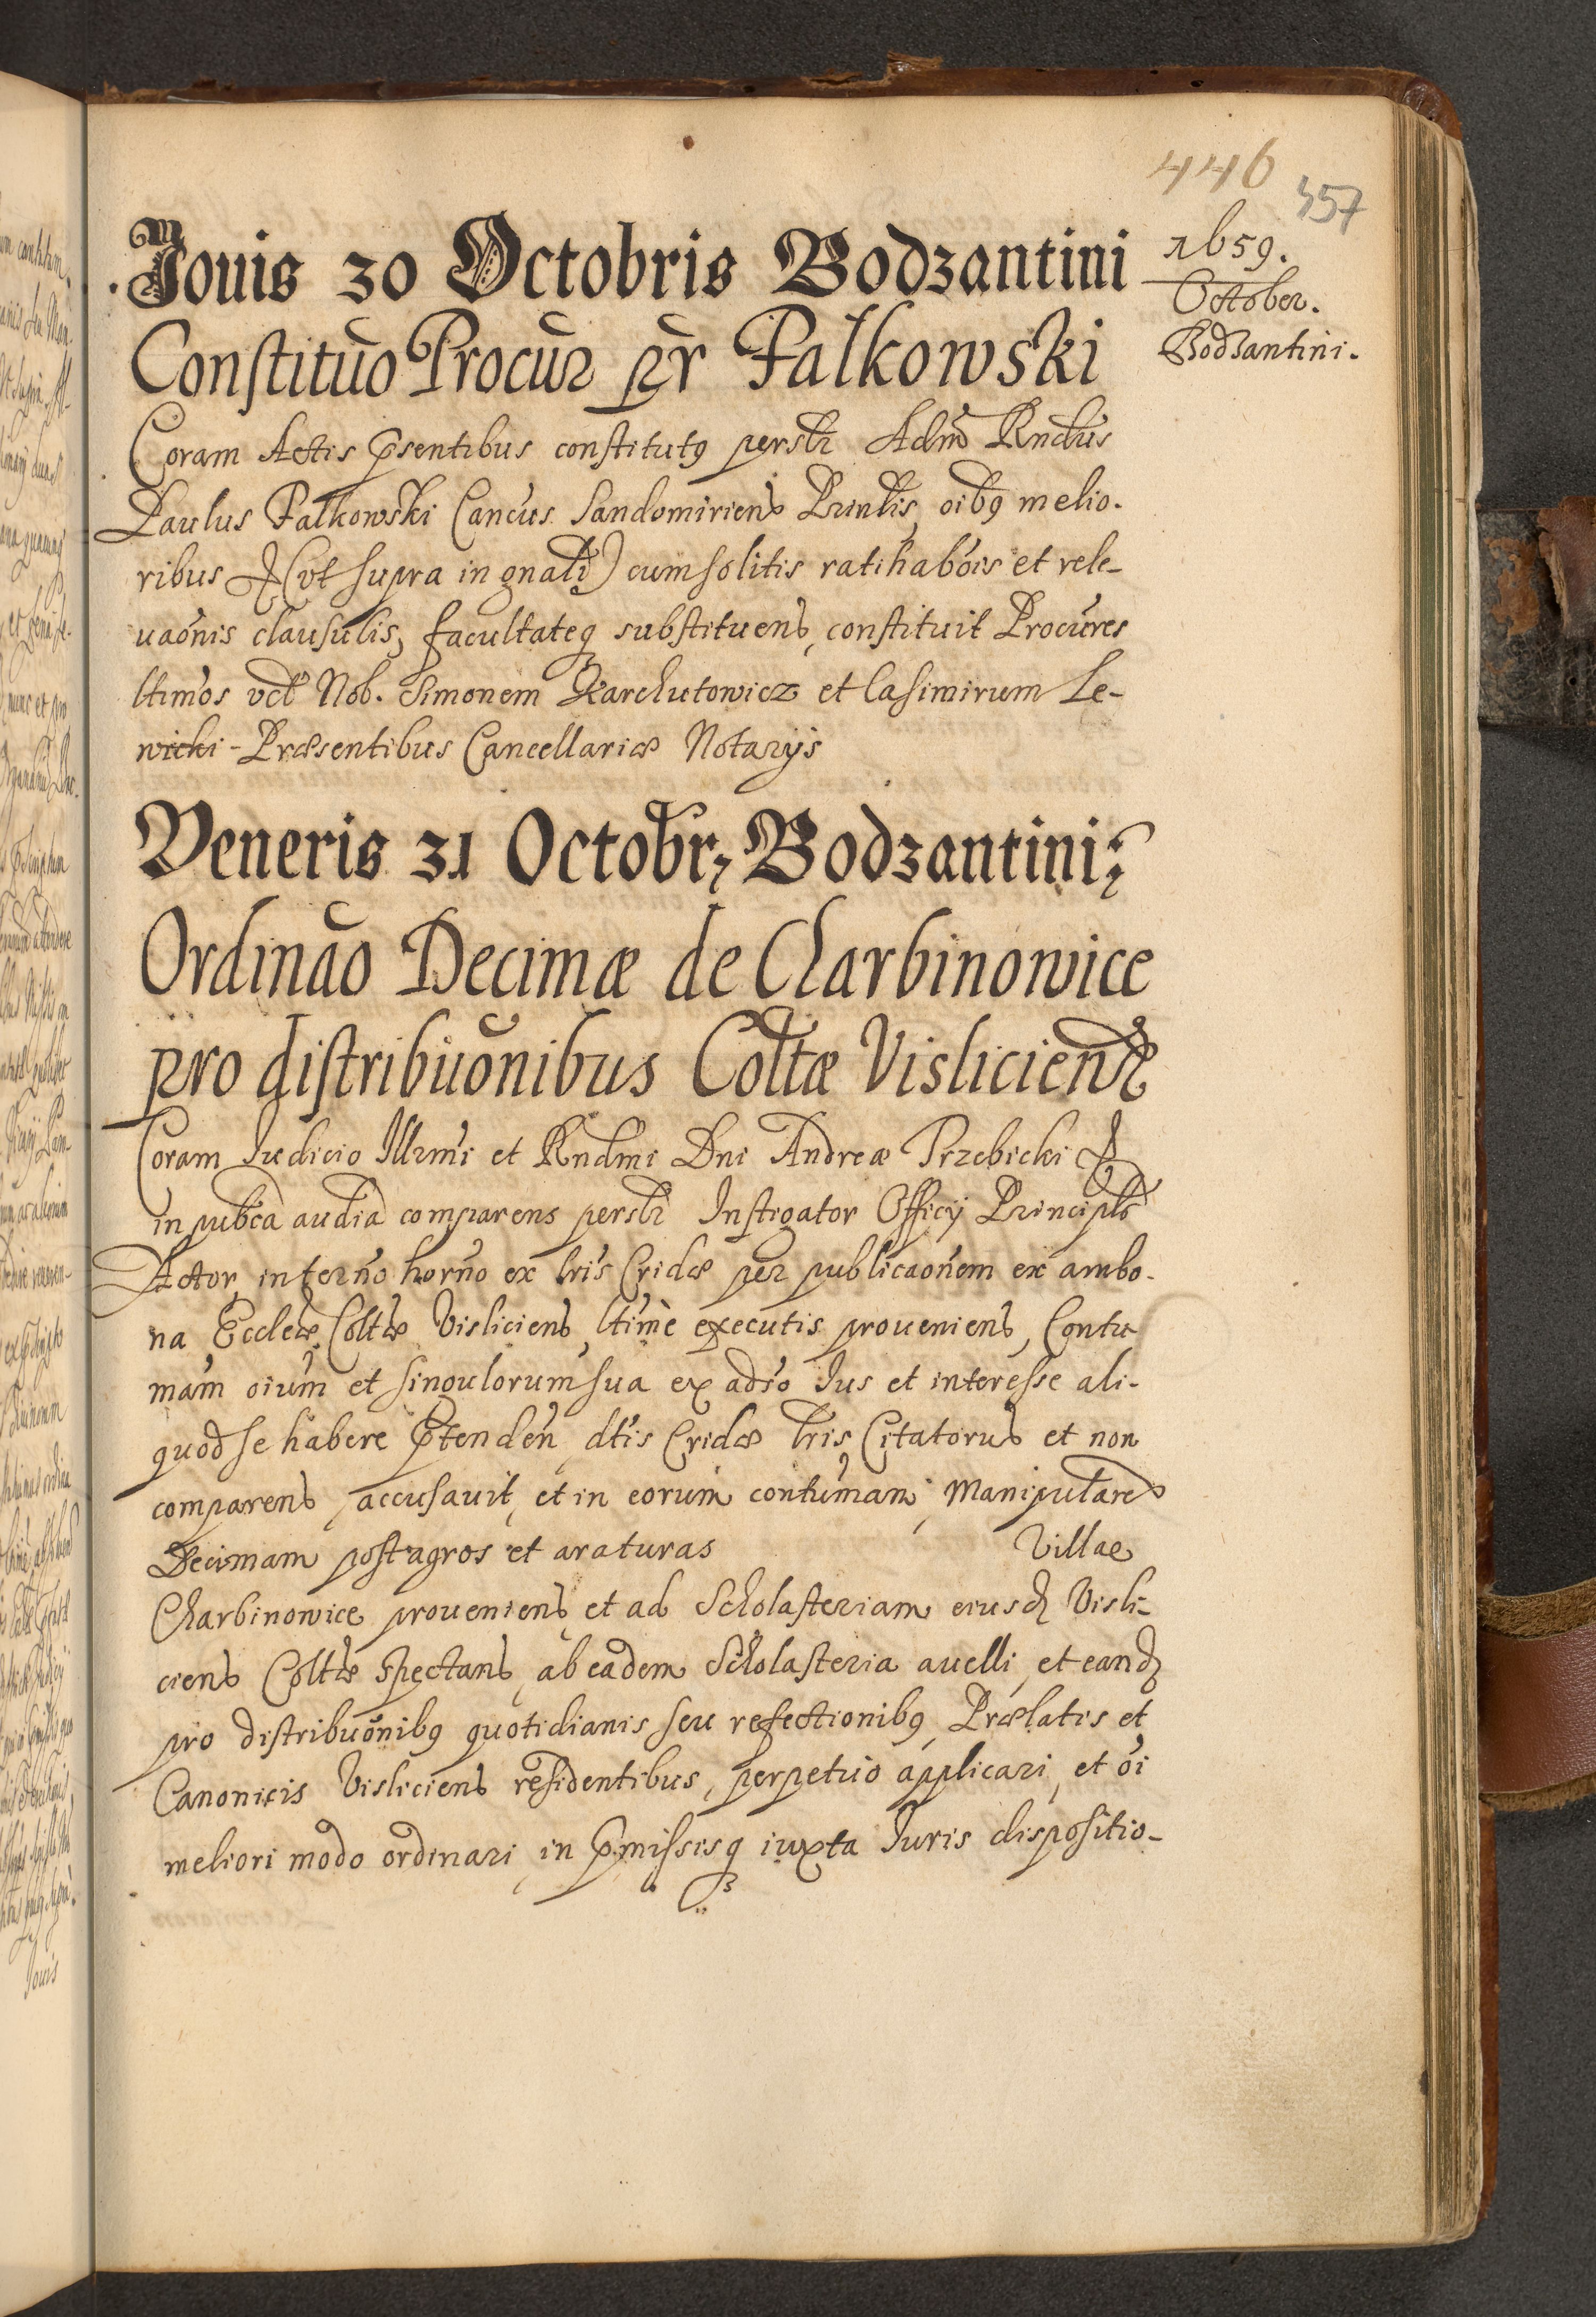 446
357
1659.
October.
Bodzantini.
Jouis 30 Octobris Bodzantini
Constituo Procur pr Falkowski
Coram Actis p̄sentibus constitutꝯ persłr Adm̄ Rndus
Paulus Falkowski Cancus Sandomiriens Prinłis, oibꝯ melio-
ribus & (vt supra in gnałi) cum solitis ratihabois et rele-
uaonis clausulis, facultateq substituens, constituit Procures
ltimos vdt Nob. Simonem Karchutowicz et Casimirum Le-
wicki - Præsentibus Cancellariæ Notarijs
Veneris 31 Octobr, Bodzantini;
Ordinao Decimæ de Charbinowice
pro distribuonibus Coltæ Visliciens
Coram Judicio Illrmi et Rndmi Dni Andreæ Trzebicki &
in pubca audia comparens persłr Instigator Officij Principls
Actor, in terno horno ex lris Cridæ per publicaonem ex ambo-
na Eccleæ Coltæ Visliciens, ltime executis proueniens, Contu
mam oium et singulorum sua ex adso Jus et interesse ali-
quod se habere p̄tenden, dtis Cridæ lris Citatorus et non
comparens, accusauit, et in eorum contumam, Manipularē
Decimam post agros et araturas Villae
Charbinowice proueniens, et ad Scholasteriam eiusd Visli-
ciens Coltæ spectans, ab eadem Scholasteria auelli, et eand
pro distribuonibꝯ quotidianis seu refectionibꝯ, Prælatis et
Canonicis Visliciens residentibus, perpetuo applicari, et oi
meliori modo ordinari, in p̄missisq iuxta Juris dispositio-